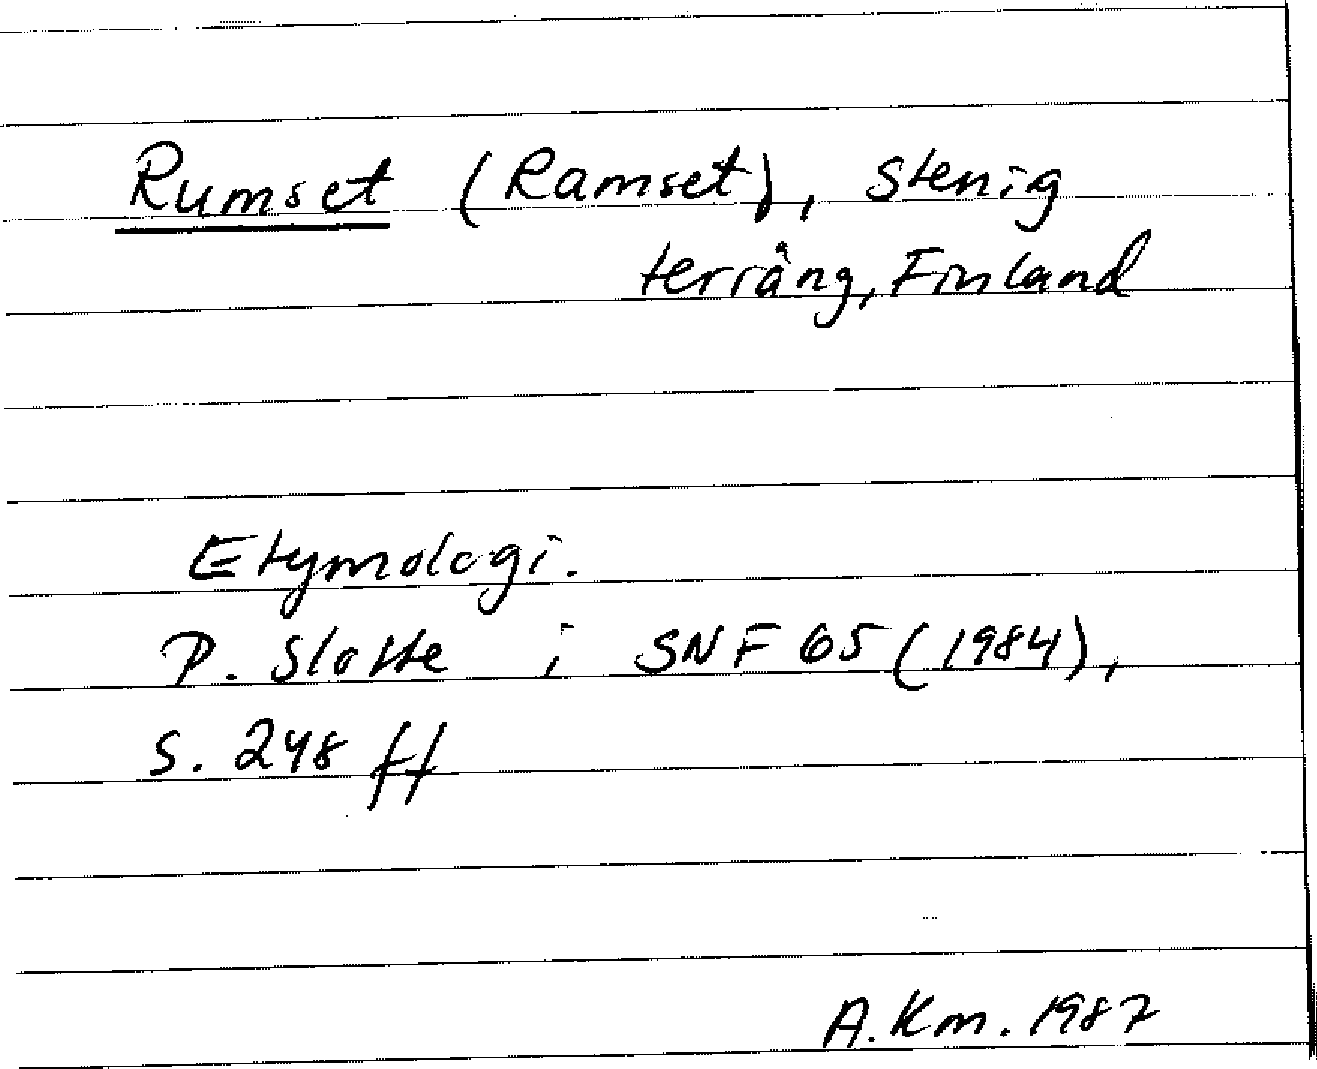 Rumset (Ramset), stenig
terräng, Finland
Etymologi.
P. Slotte i SNF 65 (1984),
s. 248 ff
A. Km. 1987